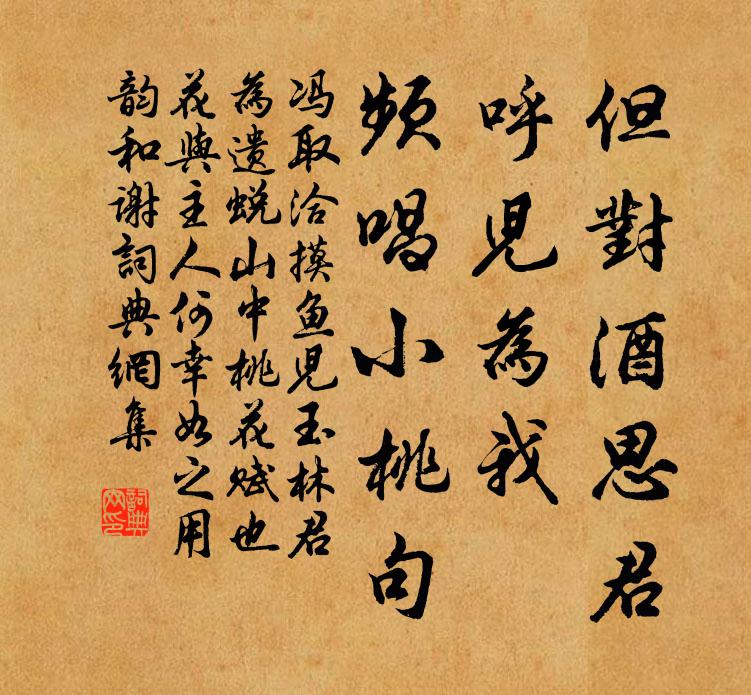 但對酒思君
呼兒為我
頻唱小桃句
冯取洽摸鱼兒玉林君
為遺蜕山中桃花赋也
花與主人何幸如之用
韵和谢詞典網集
詞典網印